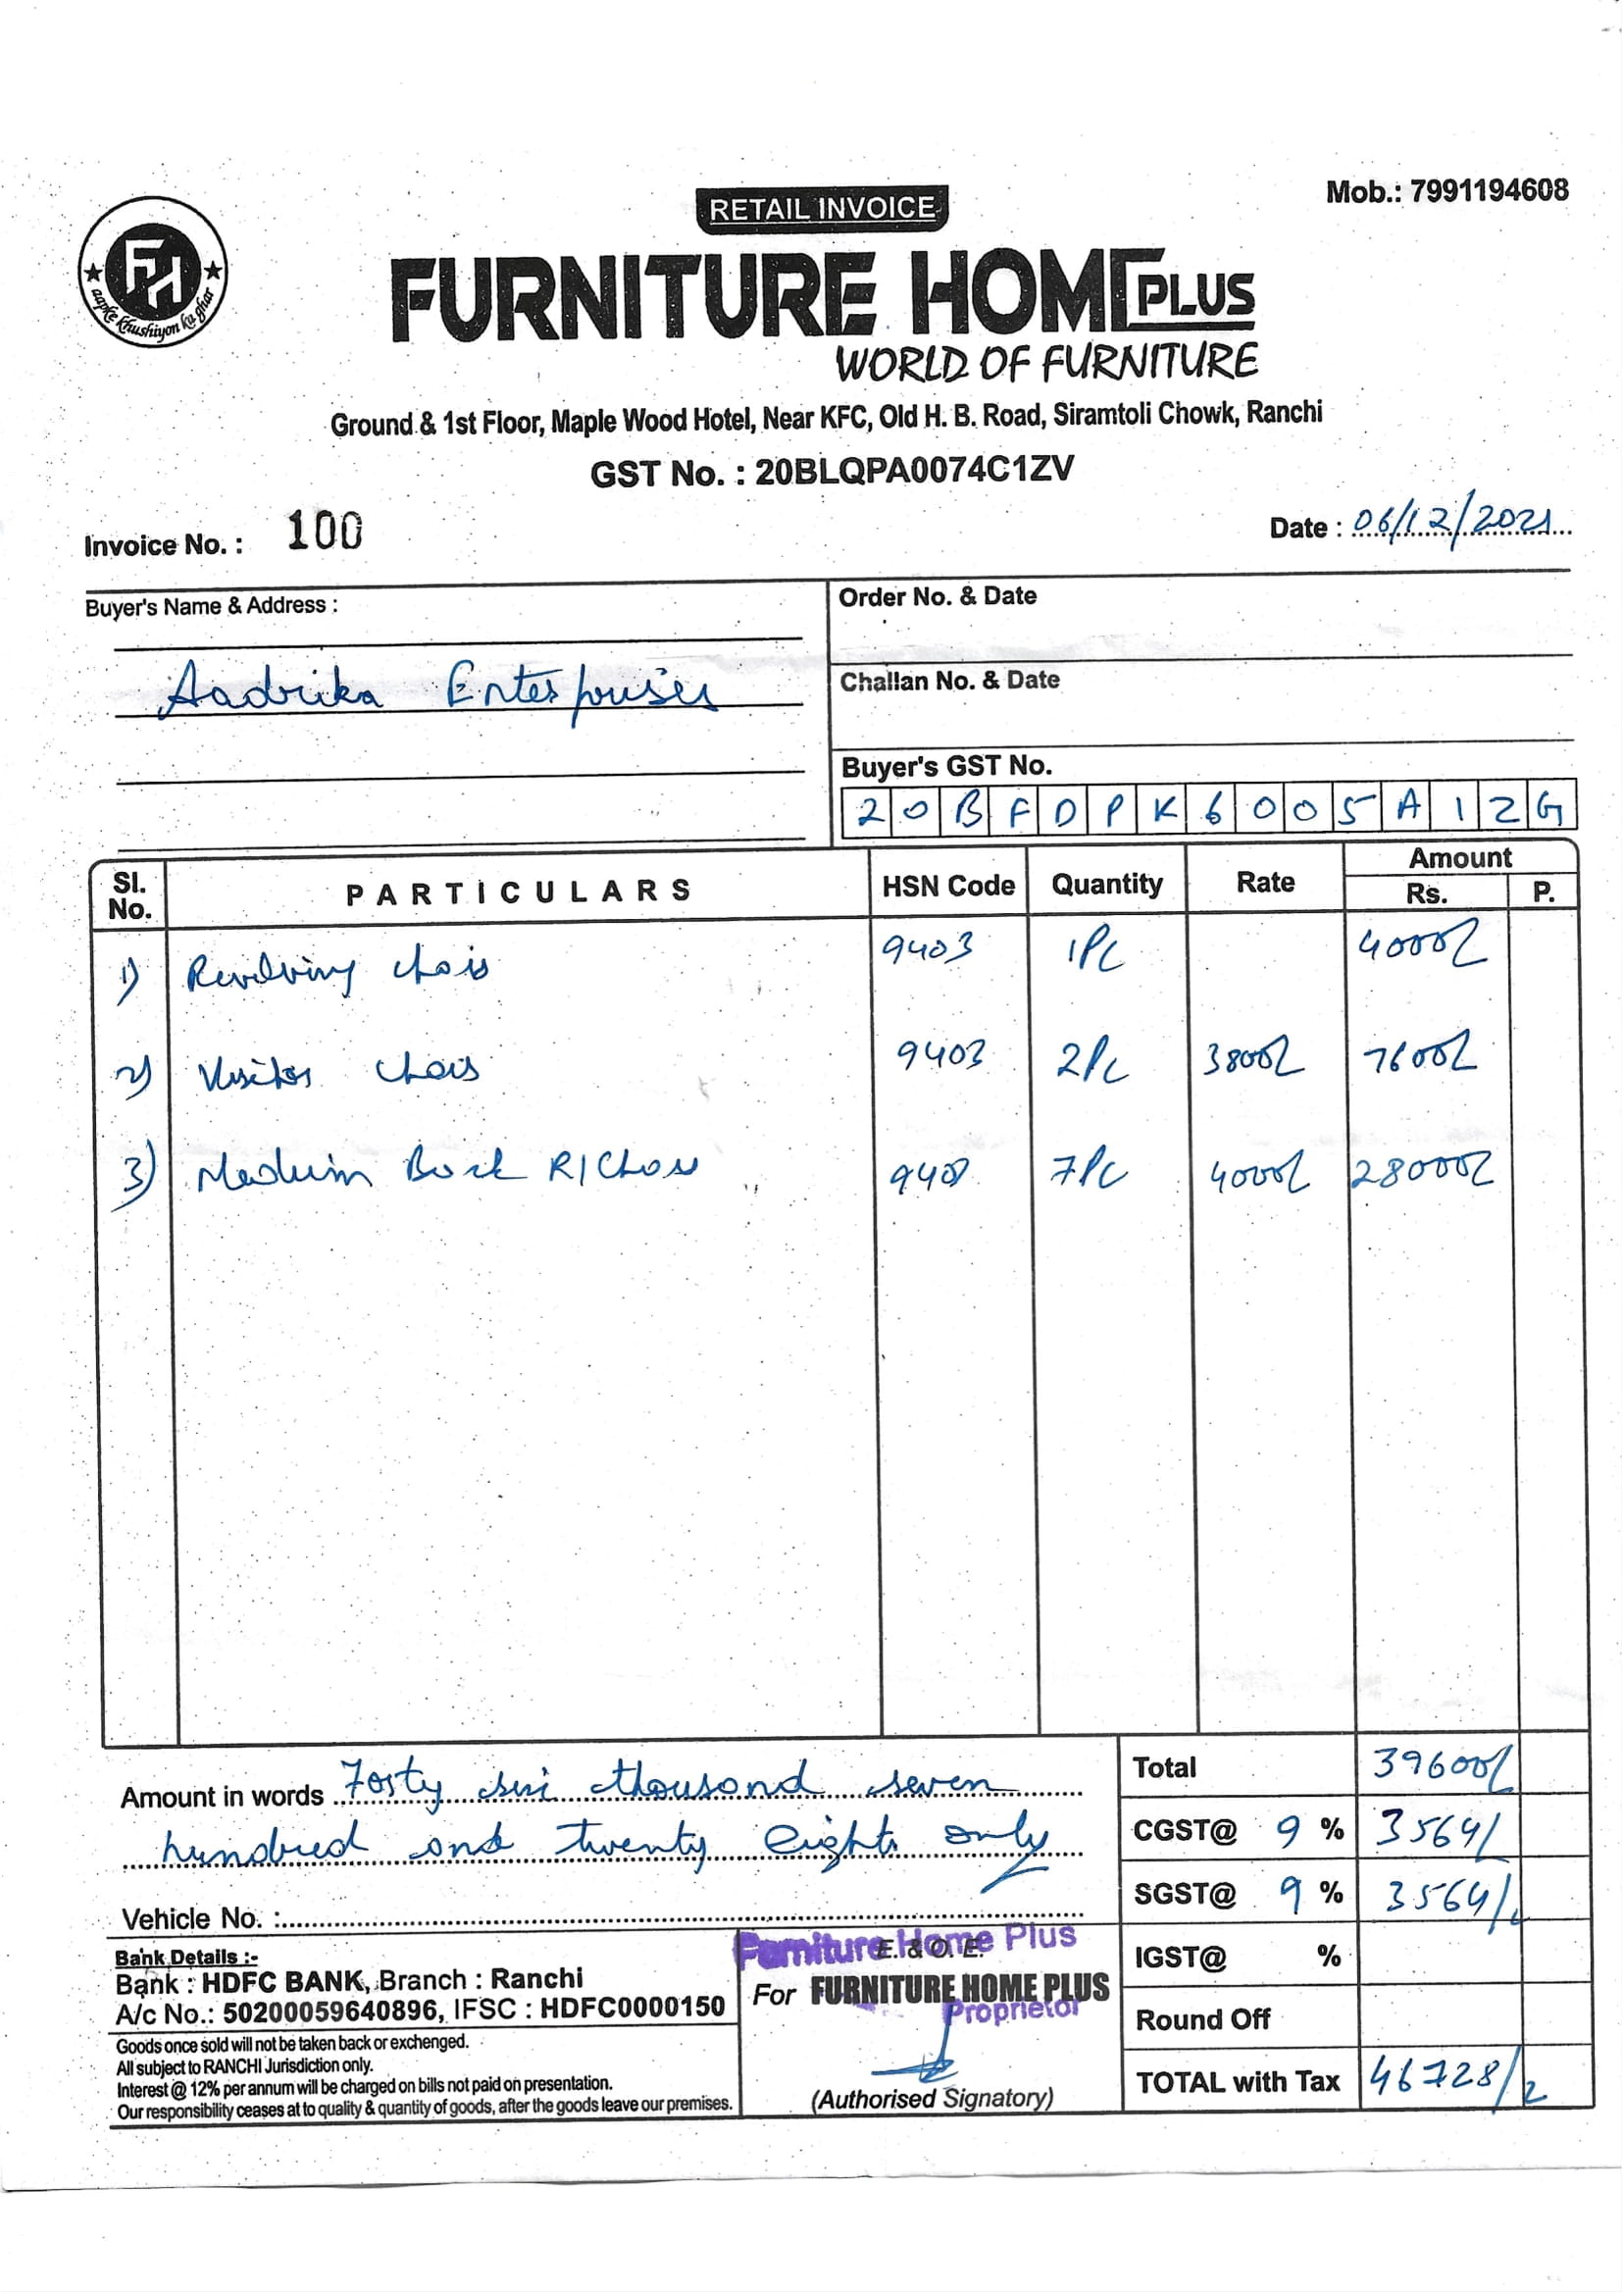 Mob.: 7991194608
RETAIL INVOICE
FH
aapke khushiyon ka ghar
FURNITURE HOME PLUS
WORLD OF FURNITURE
Ground & 1st Floor, Maple Wood Hotel, Near KFC, Old H. B. Road, Siramtoli Chowk, Ranchi
GST No. : 20BLQPA0074C1ZV
Invoice No. : 100
Date : 06/12/2021
Buyer's Name & Address :
Aadrika Enterprises
Order No. & Date
Challan No. & Date
Buyer's GST No.
20BFDPK6005A1ZG
Sl. No. PARTICULARS HSN Code Quantity Rate Amount Rs. P.
1) Revolving chair 9403 1Pc 4000/
2) Visitor chair 9403 2Pc 3800/ 7600/
3) Medium Back R/Chair 7Pc 4000/ 28000/
Amount in words Forty six thousand seven
hundred and twenty eight only
Vehicle No. :
Total 39600/
CGST@ 9 % 3564/
SGST@ 9 % 3564/
IGST@ %
Round Off
TOTAL with Tax 46728/
Bank Details :-
Bank : HDFC BANK, Branch : Ranchi
A/c No.: 50200059640896, IFSC : HDFC0000150
Goods once sold will not be taken back or exchenged.
All subject to RANCHI Jurisdiction only.
Interest @ 12% per annum will be charged on bills not paid on presentation.
Our responsibility ceases at to quality & quantity of goods, after the goods leave our premises.
Furniture Home Plus
E. & O. E.
For FURNITURE HOME PLUS
Proprietor
(Authorised Signatory)